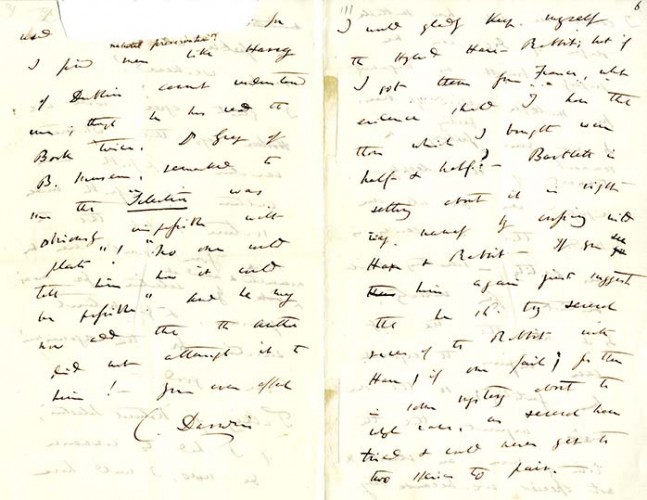 used in
natural preservation"?
I find men like Harvey
of Dublin cannot understand
me; though he has read the
Book twice. Dr Gray of
B. Museum, remarked to
me the "Selection was
obviously impossible with
plants"! "No one could
tell him how it could
be possible". and he may
now add that the author
did not attempt it to
him! Yours ever affect
C. Darwin
6
I would gladly keep myself
the Hybrid Hare-Rabbits; but if
I got them from France, what
evidence should I have that
those which I bought were
half & half? — Bartlett is
setting about it in right
way, namely by crossing wild
Hare & Rabbit — If you see
him again just suggest
that he shd. try several
races of the Rabbit with
Hare, if one fails; for there
is some mystery about the
cross, as several have
tried & could never get the
two species to pair. —